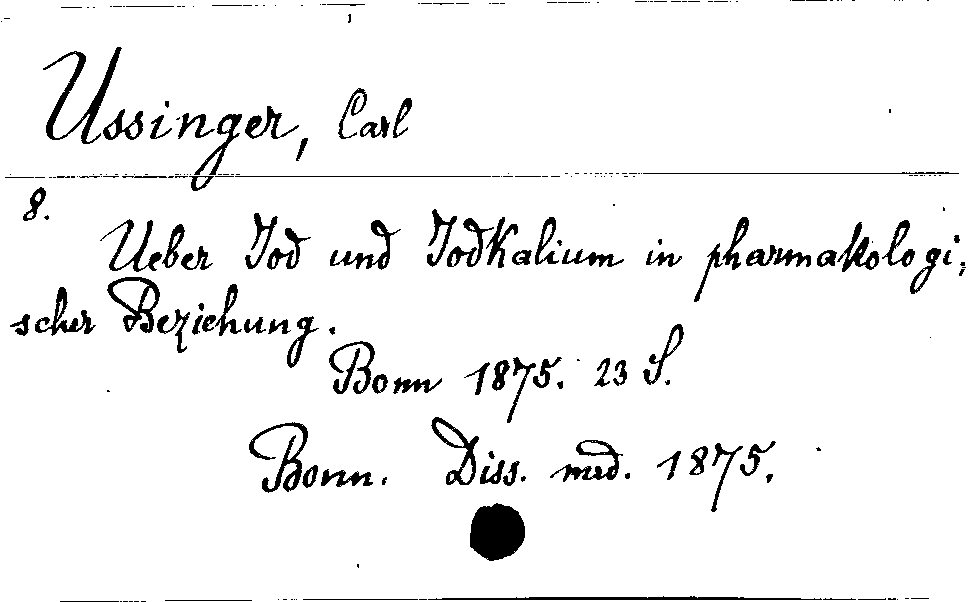 Ussinger, Carl
8.
Ueber Jod und JodKalium in pharmakologi,
scher Beziehung.
Bonn 1875. 23 S.
Bonn. Diss. med. 1875.